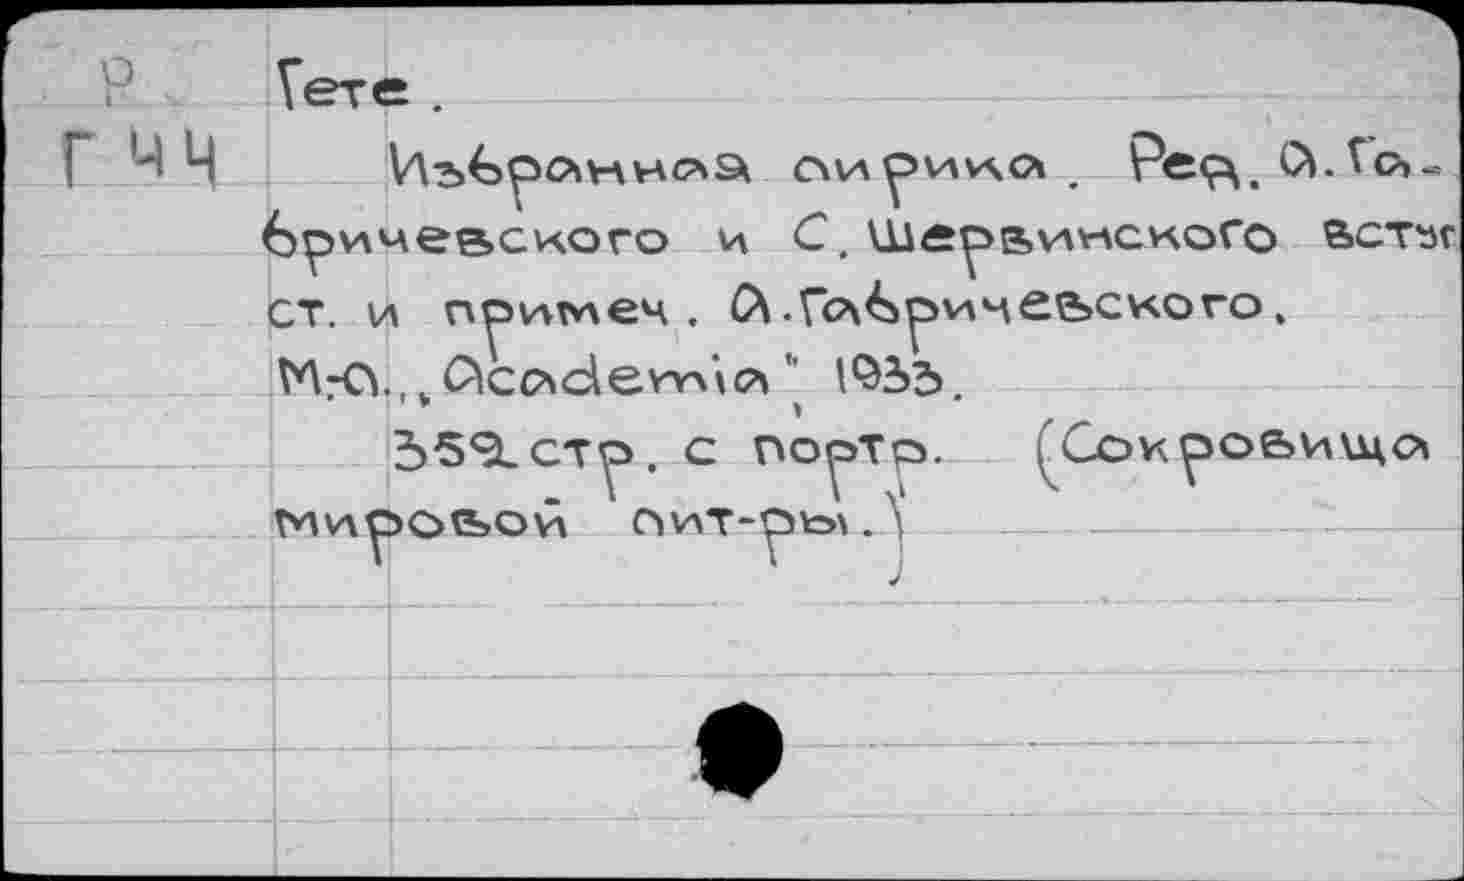 Р Гете.
Г 44 Избранная лирика. Ред. А. Га-
бричевского и С. Шервинского вступ
ст. и примеч. А. Габричевского.
М.-Л., „Academia" 1933.
352 стр. с портр. (Сокровища
мировой лит-ры.)